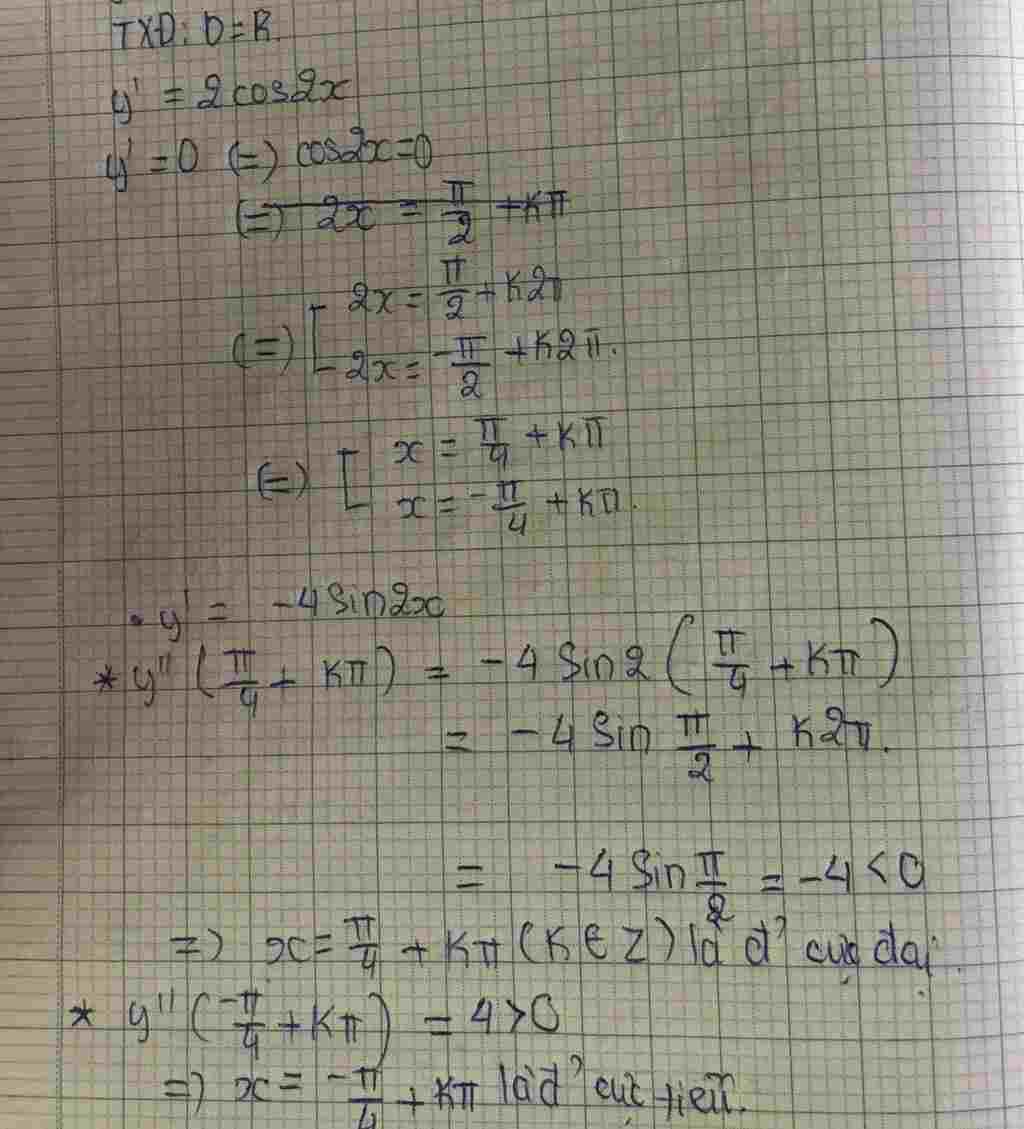 TXĐ: D=R.
y' = 2cos2x
y' = 0 (=) cos2x=0
(=) 2x = π/2 + kπ
(=) [ 2x = π/2 + k2π
2x = -π/2 + k2π.
(=) [ x = π/4 + kπ
x = -π/4 + kπ.
• y' = -4sin2x
* y'' (π/4 + kπ) = -4 sin2 (π/4 + kπ)
= -4 sin π/2 + k2π.
= -4 sin π/2 = -4 < 0
=) x = π/4 + kπ (k ∈ Z) là đ' cực đại.
* y'' (-π/4 + kπ) = 4 > 0
=) x = -π/4 + kπ là đ' cực tiểu.